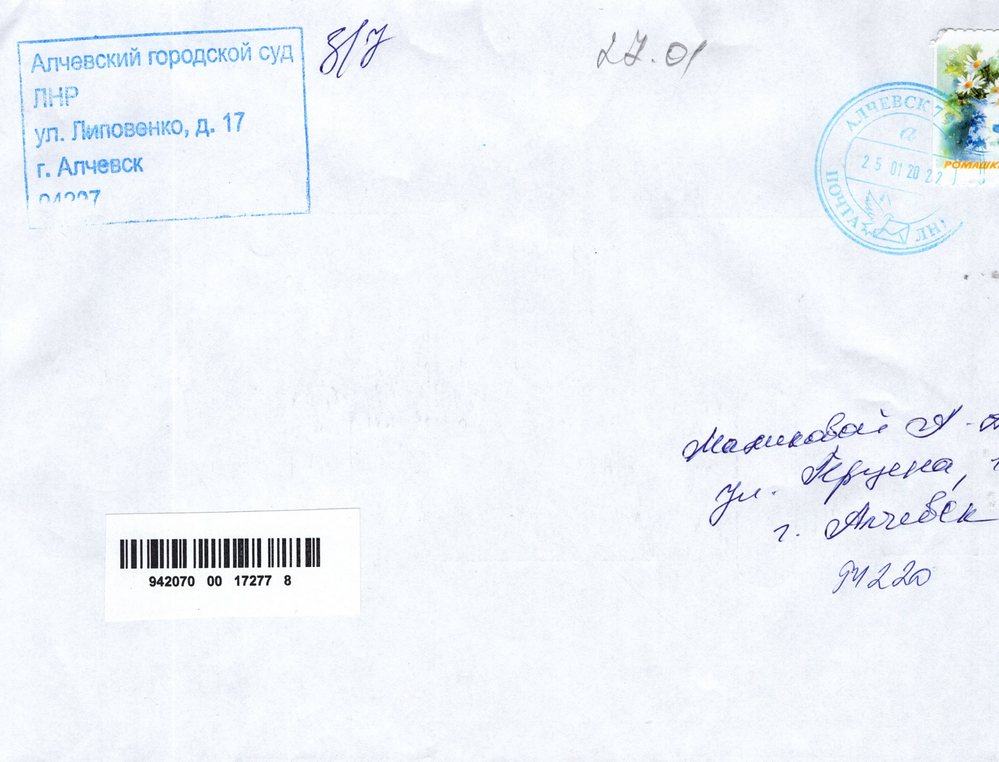 Алчевский городской суд
ЛНР
ул. Липовенко, д. 17
г. Алчевск
94207
з/у
27.01
АЛЧЕВСК 7
а
25 01 20 22
ПОЧТА ЛНР
РОМАШК
А.
ул. Герцена,
г. Алчевск
94220
942070 00 17277 8